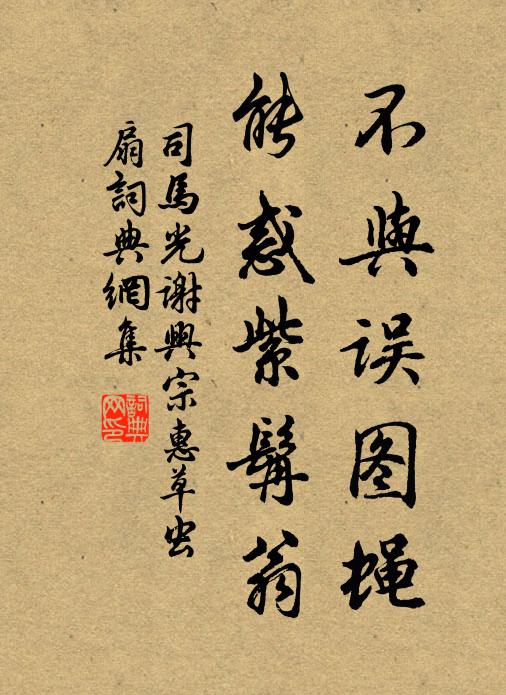 不與误图蝇
能惑紫髯翁
司馬光谢興宗惠草虫
扇詞典網集
詞典
网印